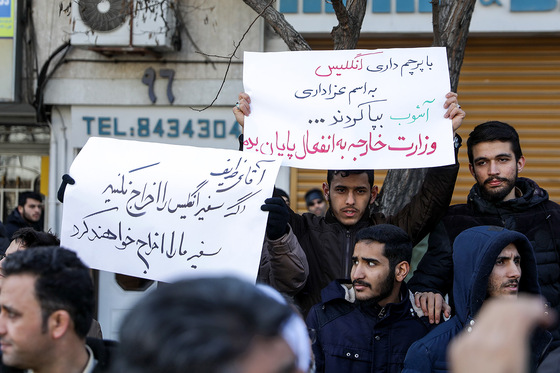 ۹۶
TEL: 8434304
با پرچم داری انگلیس
به اسم عزاداری
آشوب بپا کردند ...
وزارت خارجه به انفعال پایان بده
آقای ظریف
اگه سفیر انگلیس را اخراج نکنید
سفیر ما را اخراج خواهند کرد